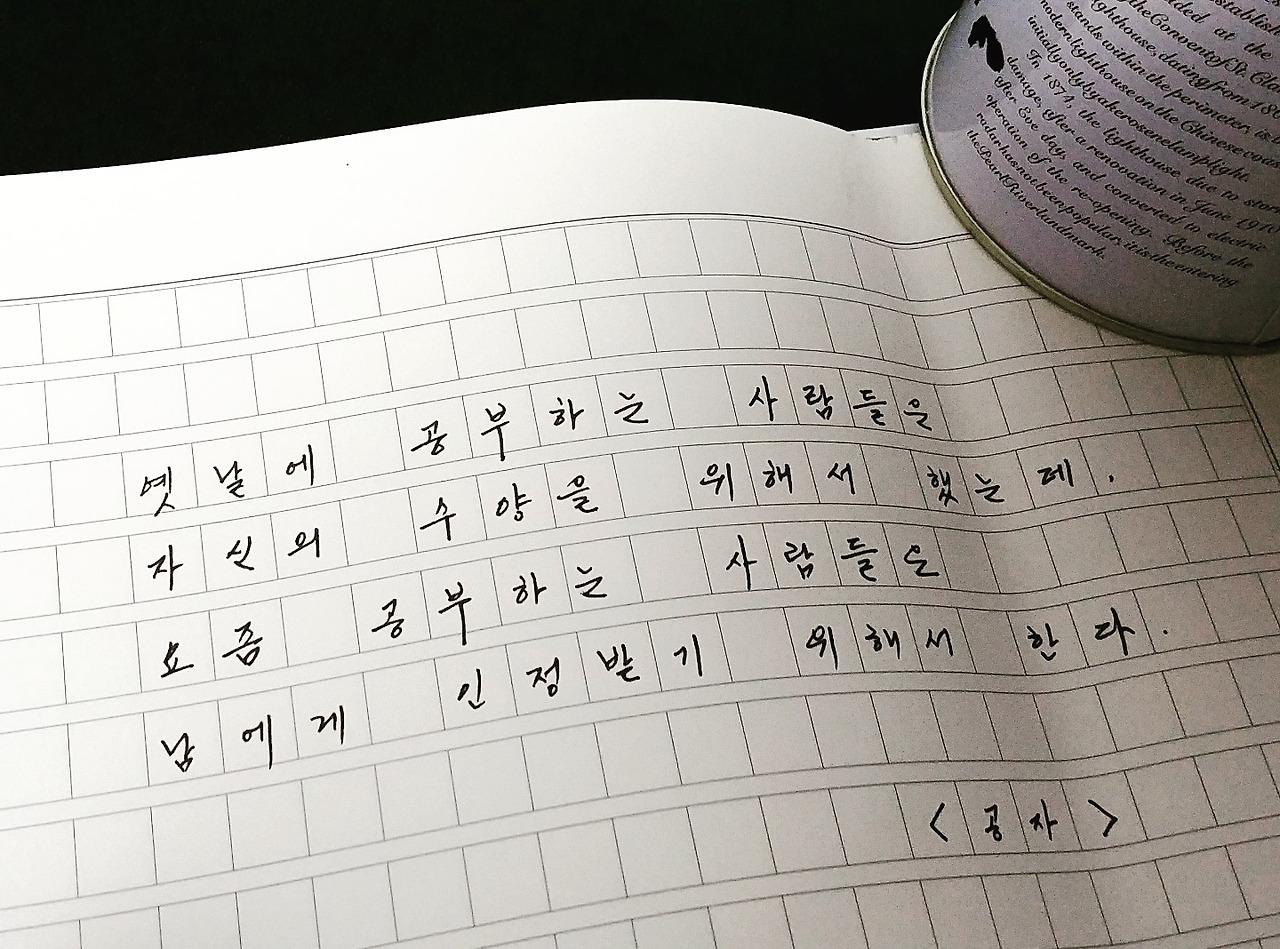 옛날에 공부하는 사람들은
자신의 수양을 위해서 했는데,
요즘 공부하는 사람들은
남에게 인정받기 위해서 한다.
<공자>
stablish
ded at the
the Convent of St. Cla
lighthouse, dating from 186
stands within the perimeter, is
modern lighthouse on the Chinese coas
initially only by a kerosene lamplight.
In 1874, the lighthouse due to stor
damage, after a renovation in June 1910
after Eve days and converted to electric
operation of the re-opening. Before the
radar has not been popular, it is the entering
the Pearl River landmark.